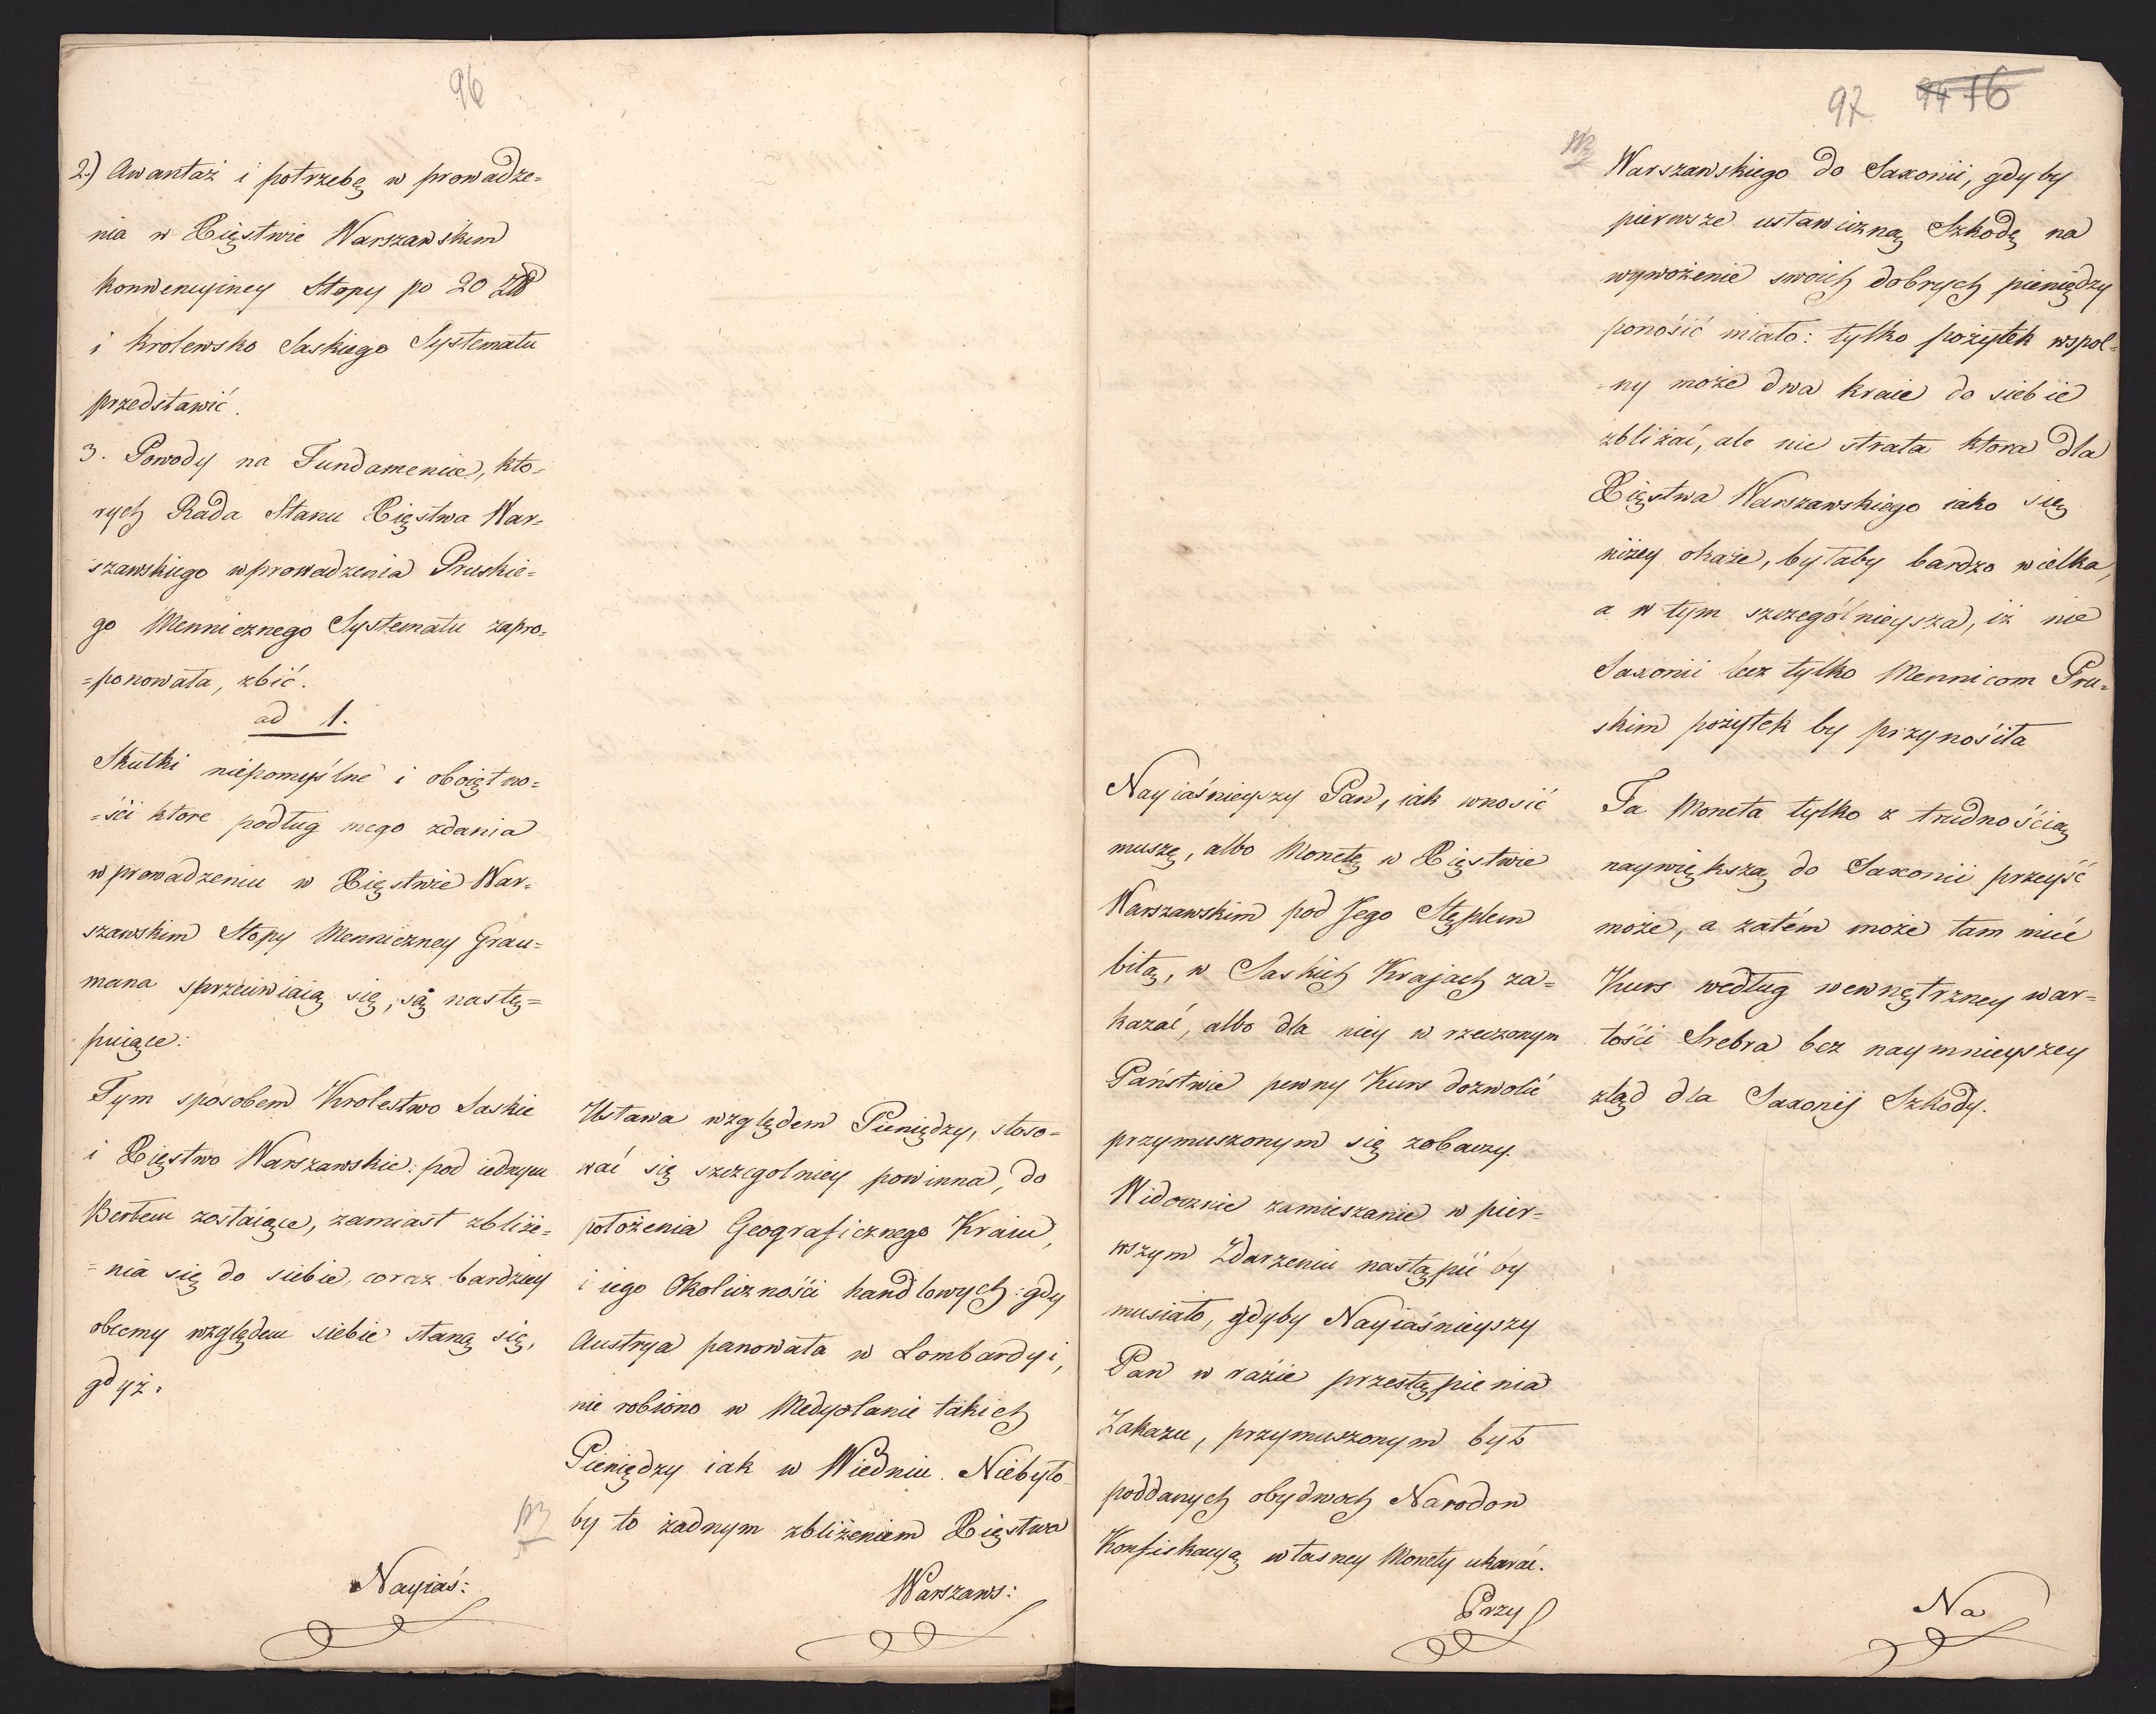 96
2.) Awantaż i potrzebę w prowadze=
nia w Xięstwie Warszawskim
konwencyiney Stopy po 20
i krolewsko Saskiego Systematu
przedstawić.
3. Powody na Fundamencie, kto=
rych Rada Stanu Xięstwa War=
szawskiego wprowadzenia Pruskie=
go Mennicznego Systematu zapro=
=ponowała, zbić.
ad 1.
Skutki niepomyślne i oboiętno=
=ści ktore podług mego zdania
wprowadzeniu w Xięstwie War=
szawskim Stopy Menniczney Grau=
mana sprzeciwiaią się, są nastę=
puiące:
Tym sposobem Krolestwo Saskie
i Xięstwo Warszawskie: pod iednym
Berłem zostaiące, zamiast zbliże=
=nia się do siebie, coraz bardziey
obcemy względem siebie staną się,
gdyż.
Nayiaś:
Ustawa względem Pieniędzy, stoso=
wać się szczegolniey powinna, do
położenia Geograficznego Kraiu,
i iego Okoliczności handlowych: gdy
Austrya panowała w Lombardyi,
nie robiono w Medyolanie takich
Pieniędzy iak w Wiedniu. Niebyło
by to żadnym zbliżeniem Xięstwa
Warszaws:
97 94 76
Nayiaśnieyszy Pan, iak wnosić
muszę, albo Monetę w Xięstwie
Warszawskim pod Jego Stęplem
bitą, w Saskich Krajach za=
kazać, albo dla niey w rzeczonym
Państwie pewny Kurs dozwolić
przymuszonym się zobaczy.
Widocznie zamieszanie w pier=
wszym Zdarzeniu nastąpić by
musiało, gdyby Nayiaśnieyszy
Pan w razie przestąpienia
Zakazu, przymuszonym był
poddanych obydwoch Narodow
Konfiskacyą własney Monety ukarać.
Przy
Warszawskiego do Saxonii, gdyby
pierwsze ustawiczną Szkodę na
wywożenie swoich dobrych pieniędzy
ponosić miało: tylko pożytek wspol=
=ny może dwa kraie do siebie
zbliżać, ale nie strata ktora dla
Xięstwa Warszawskiego iako się
niżey okaże, byłaby bardzo wielka,
a w tym szczegółnieysza, iż nie
Saxonii lecz tylko Mennicom Pru=
skim pożytek by przynosiła
Ta Moneta tylko z trudnością
naywiększą do Saxonii przeyść
może, a zatém może tam mieć
Kurs według wewnętrzney war=
tości Srebra bez naymnieyszey
ztąd dla Saxonij Szkody.
Na